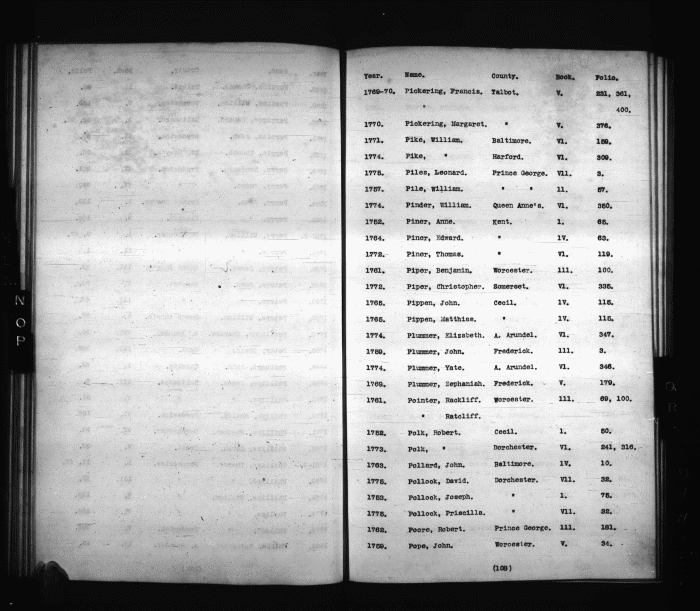 Year. Name. County. Book. Folio.
1769-70. Pickering, Francis. Talbot. V. 231, 361,
" 400.
1770. Pickering, Margaret. " V. 376.
1771. Pike, William. Baltimore. V1. 189.
1774. Pike, " Harford. V1. 309.
1775. Piles, Leonard. Prince George. V11. 3.
1757. Pile, William. " " 11. 57.
1774. Pinder, William. Queen Anne's. V1. 350.
1752. Piner, Anne. Kent. 1. 65.
1764. Piner, Edward. " 1V. 63.
1772. Piner, Thomas. " V1. 119.
1761. Piper, Benjamin. Worcester. 111. 100.
1772. Piper, Christopher. Somerset. V1. 335.
1765. Pippen, John. Cecil. 1V. 115.
1765. Pippen, Matthias. " 1V. 115.
1774. Plummer, Elizabeth. A. Arundel. V1. 347.
1759. Plummer, John. Frederick. 111. 3.
1774. Plummer, Yate. A. Arundel. V1. 346.
1769. Plummer, Zephaniah. Frederick. V. 179.
1761. Pointer, Rackliff. Worcester. 111. 69, 100.
" Ratcliff.
1752. Polk, Robert. Cecil. 1. 50.
1773. Polk, " Dorchester. V1. 241, 316.
1763. Pollard, John. Baltimore. 1V. 10.
1775. Pollock, David. Dorchester. V11. 32.
1753. Pollock, Joseph. " 1. 75.
1775. Pollock, Priscilla. " V11. 32.
1762. Poore, Robert. Prince George. 111. 181.
1759. Pope, John. Worcester. V. 34.
(108)
N
O
P